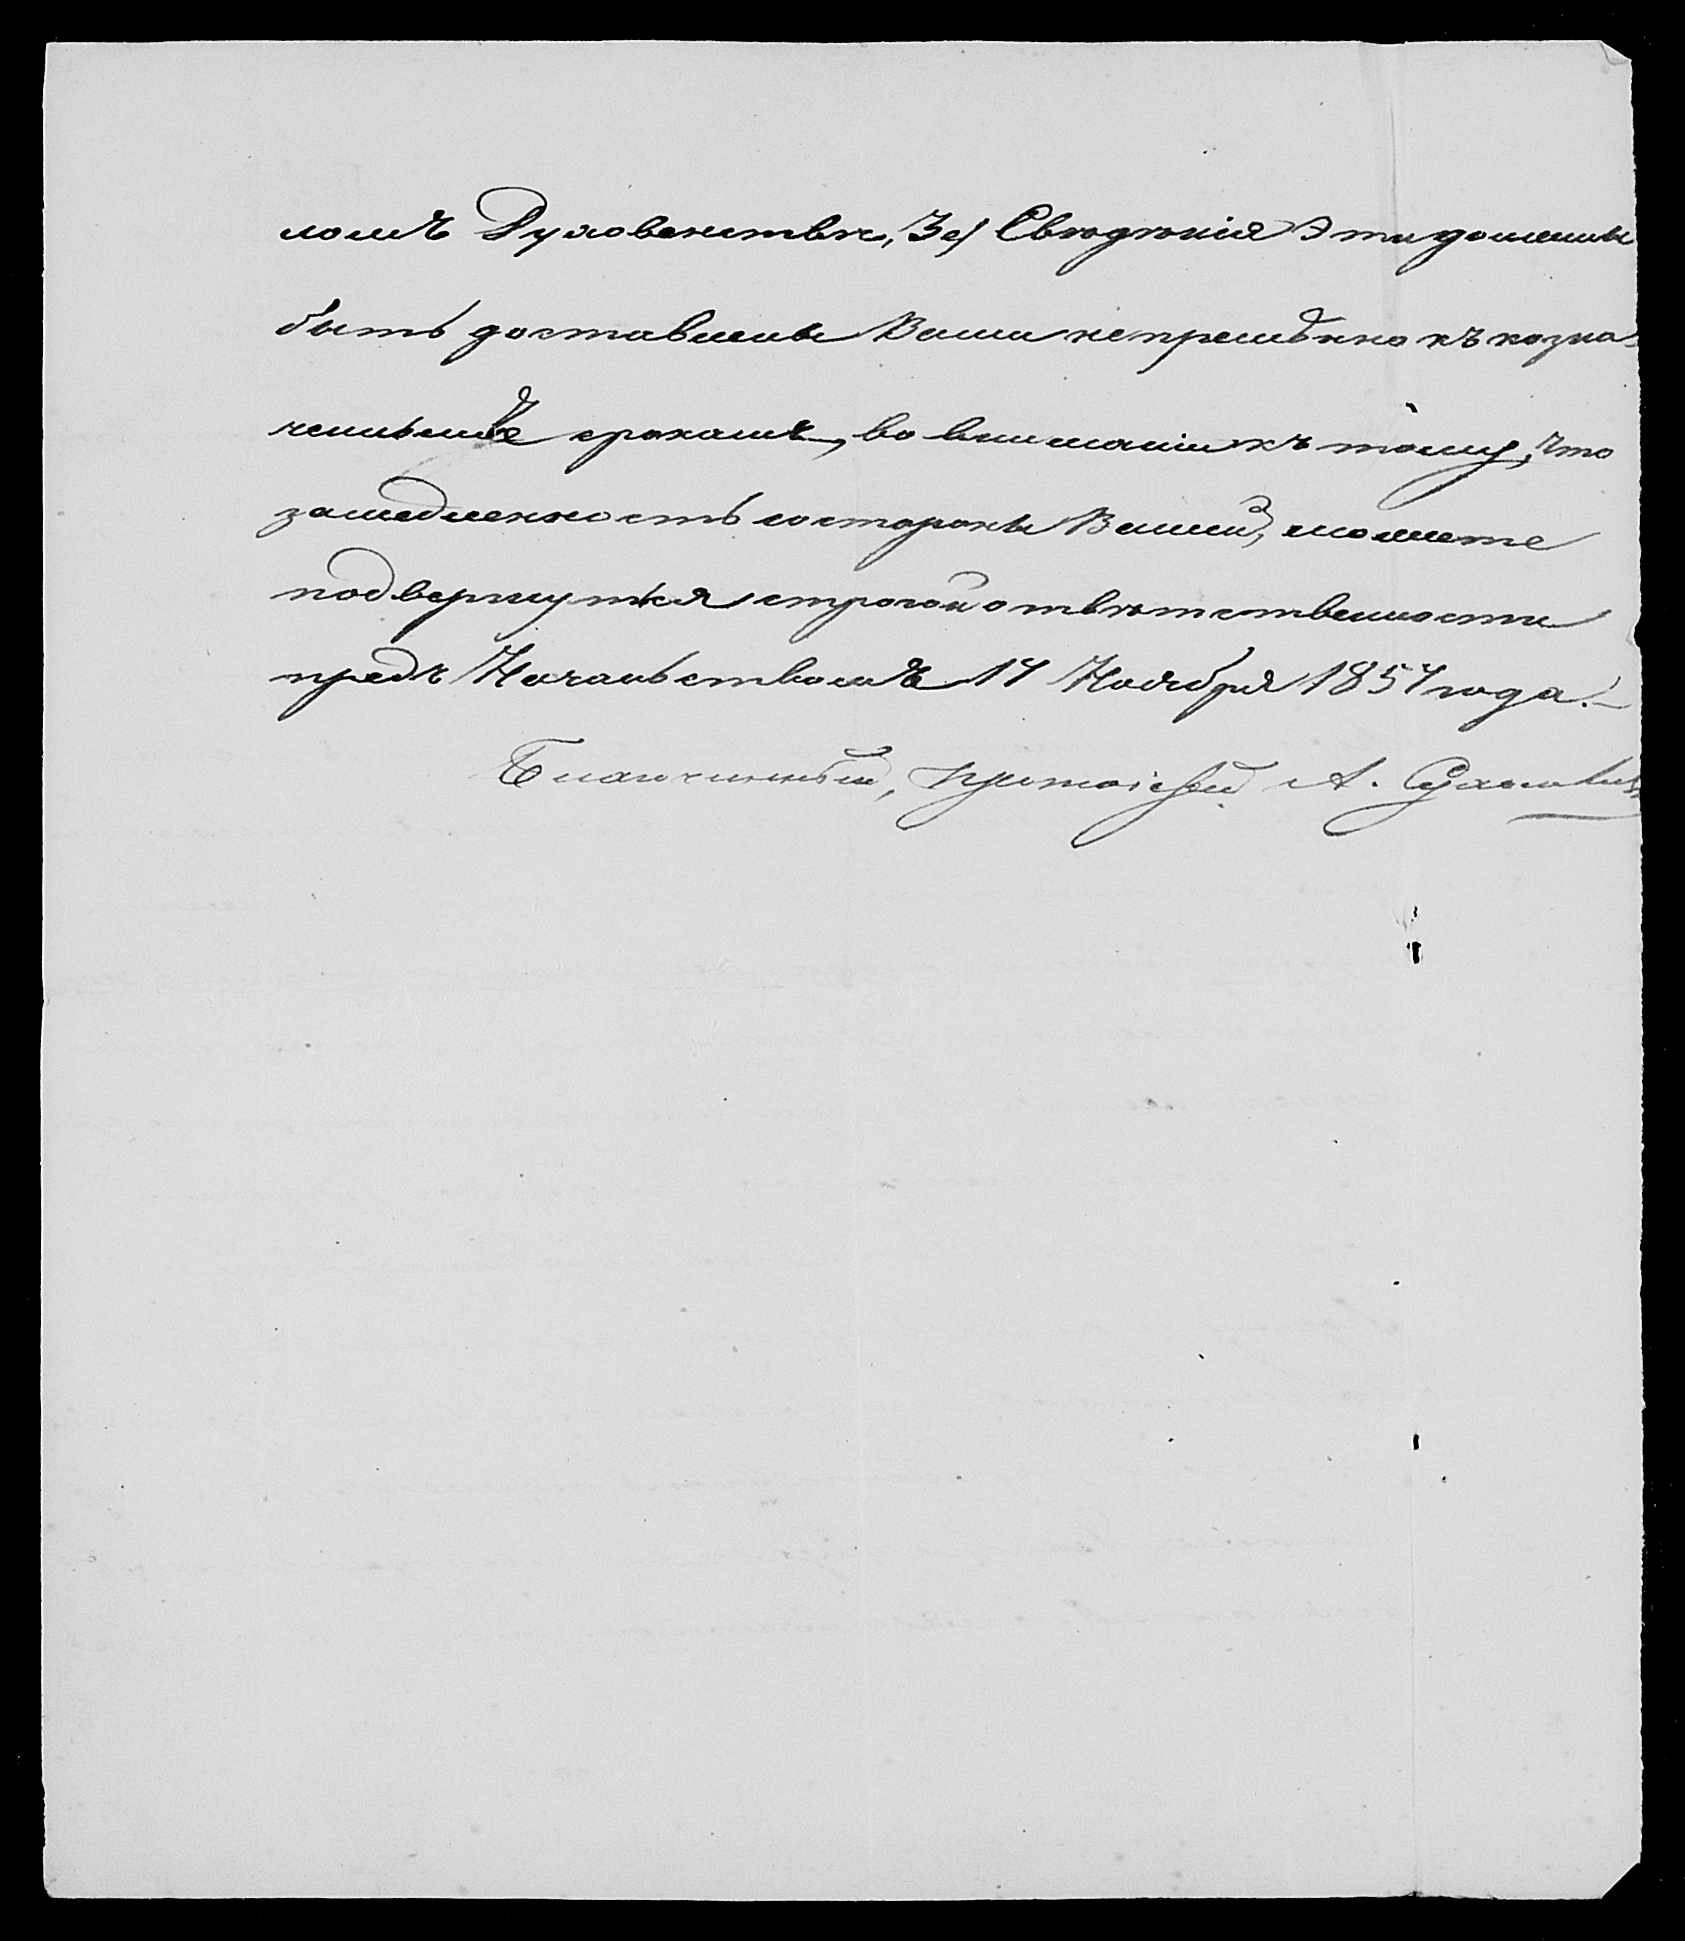 ломъ Духовенствѣ, 3е) Свѣдѣнія Эти должны
быть доставлены Вами непремѣнно къ назна-
ченнымъ срокамъ, во вниманіи къ тому, что
замедленность со стороны Вашей, можете
подвергнуться строгой отвѣтственности
предъ Начальствомъ. 14 Ноября 1857 года.
Благочинный, Протоіерей А.